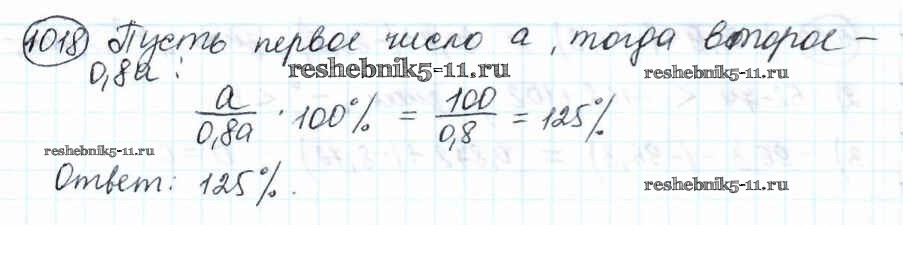 1018 Пусть первое число a, тогда второе –
0,8a:
reshebnik5-11.ru
reshebnik5-11.ru
a/0,8a · 100% = 100/0,8 = 125%
reshebnik5-11.ru
Ответ: 125%.
reshebnik5-11.ru